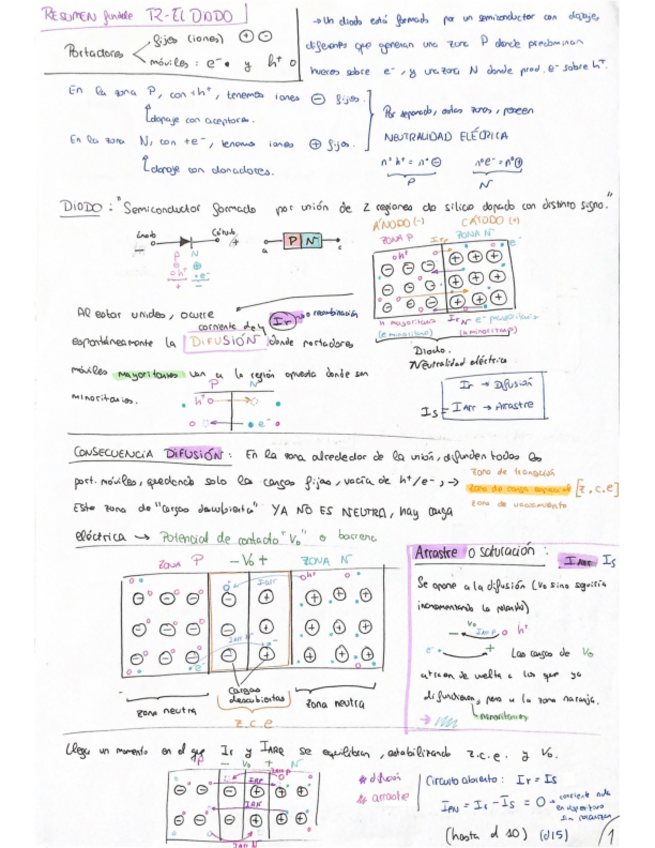 RESUMEN T2-EL DIODO
Portadores
fijos (iones) ⊕ ⊖
móviles: e⁻ • y h⁺ o
→ Un diodo está formado por un semiconductor con dopajes
diferentes que generan una zona P donde predominan
huecos sobre e⁻, y una zona N donde pred. e⁻ sobre h⁺.
En la zona P, con +h⁺, tenemos iones ⊖ fijos.
dopaje con aceptores.
En la zona N, con +e⁻, tenemos iones ⊕ fijos.
dopaje con donadores.
Por separado, estas zonas, poseen
NEUTRALIDAD ELÉCTRICA
n° h⁺ = n° ⊖
n° e⁻ = n° ⊕
P
N
DIODO: "Semiconductor formado por unión de 2 regiones de silicio dopado con distinto signo."
Ánodo
Cátodo
P N
ÁNODO (-) CÁTODO (+)
ZONA P ZONA N
Al estar unidos, ocurre
corriente de
Ir
o recombinación
espontáneamente la DIFUSIÓN donde portadores
móviles mayoritarios van a la región opuesta donde son
minoritarios.
P N
h⁺
e⁻
h mayoritario
e⁻ mayoritario
(e minoritario)
(h minoritario)
Diodo.
Neutralidad eléctrica
Ir → Difusión
Is = IARR → Arrastre
CONSECUENCIA DIFUSIÓN: En la zona alrededor de la unión, difunden todos los
port. móviles, quedando solo las cargas fijas, vacía de h⁺/e⁻, →
zona de transición
zona de carga espacial [z.c.e]
zona de vaciamiento
Esta zona de "cargas descubiertas" YA NO ES NEUTRA, hay carga
eléctrica → Potencial de contacto "Vo" o barrera
ZONA P - Vo + ZONA N
Cargas
descubiertas
zona neutra
zona neutra
z.c.e
Arrastre o saturación:
IARR Is
Se opone a la difusión (Vo sino seguiría
incrementando)
Vo
h⁺
e⁻
Las cargas de Vo
atraen de vuelta a los que ya
difundieron, pero a la zona naranja.
minoritarios
Llega un momento en el que Ir y IARR se equilibran, estabilizando z.c.e. y Vo.
P - Vo + N
difusión
arrastre
Circuito abierto: Ir = Is
IPN = Ir - Is = 0
corriente nula
en dispositivo
sin polarizar
(hasta d 10) (d15)
1